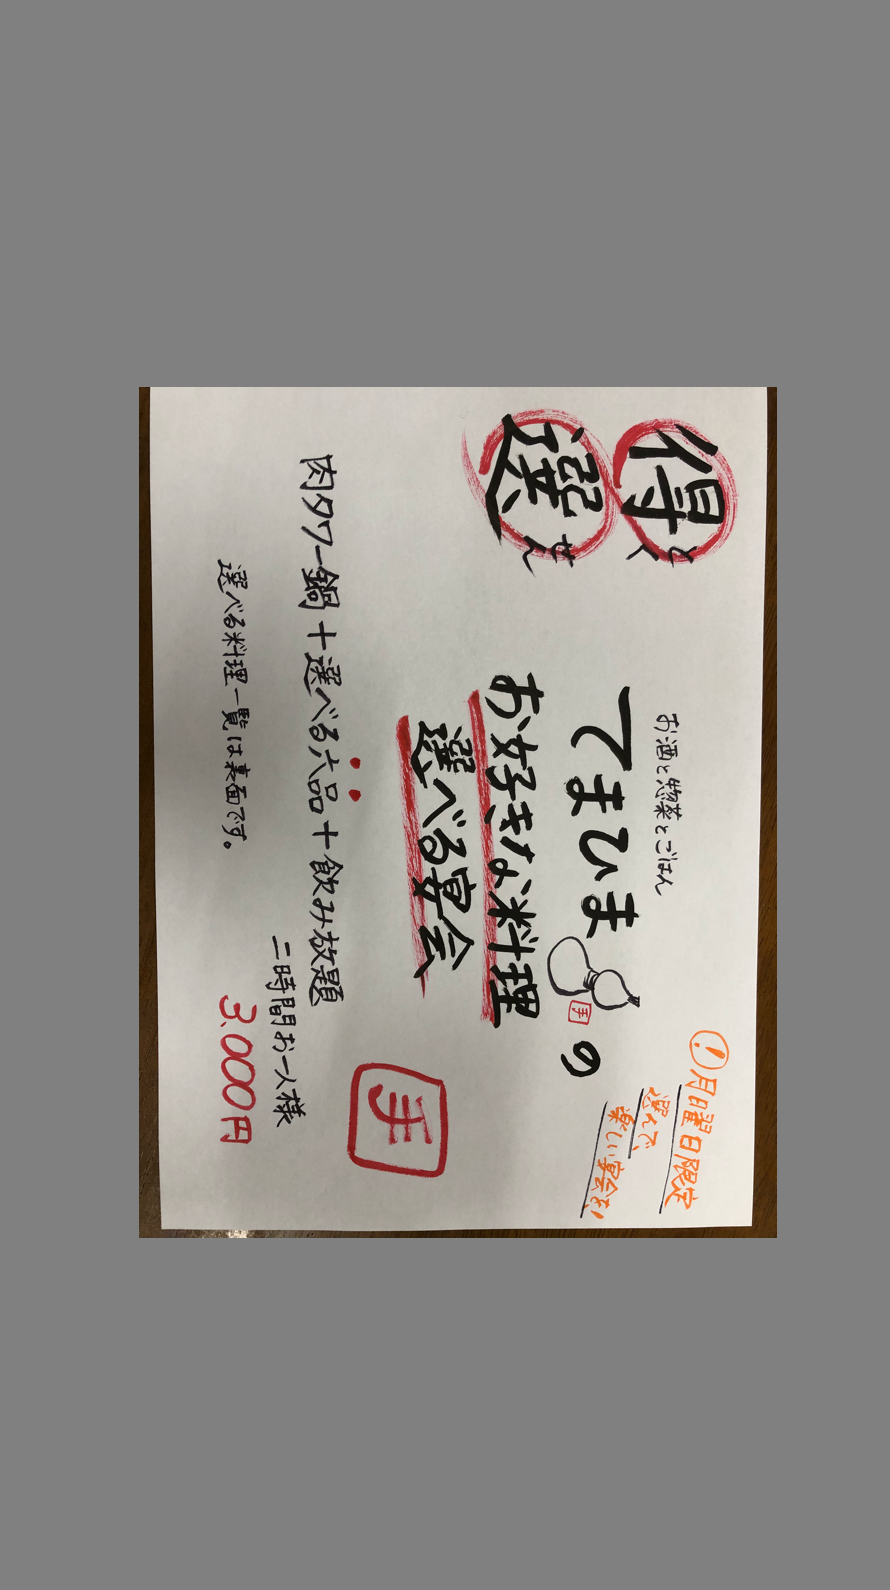 得とく
選せん
お酒と惣菜とごはん
てまひま
手
の
お好きな料理
選べる宴会
!月曜日限定
選んで、
楽しい宴会を!
手
肉タワー鍋+選べる六品+飲み放題
二時間お一人様
3,000円
選べる料理一覧は裏面です。